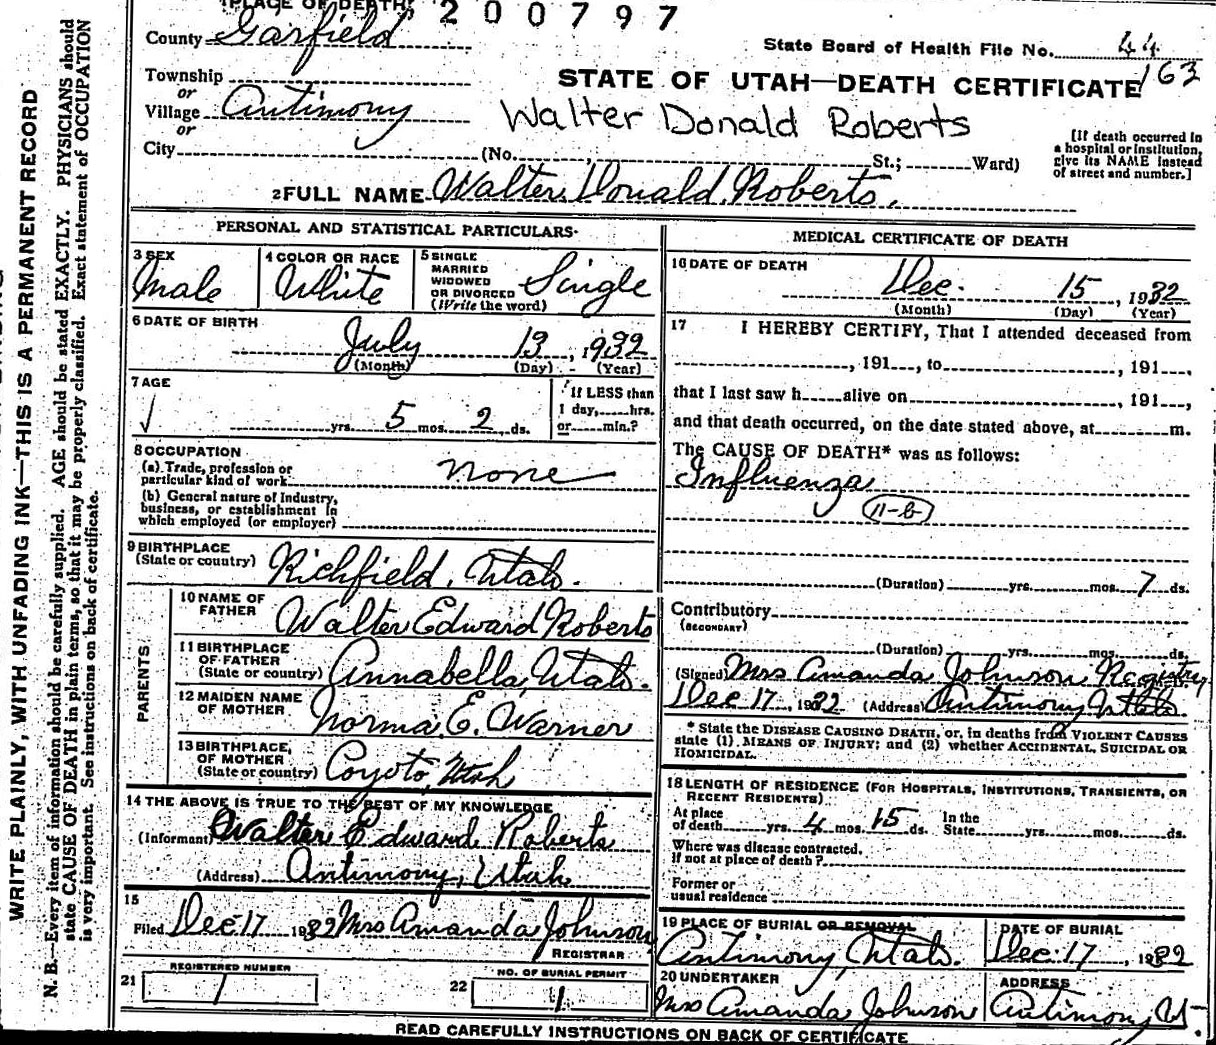 PLACE OF DEATH
200797
County Garfield
State Board of Health File No. 44
163
Township
or
Village Antimony
or
City (No. St.; Ward)
STATE OF UTAH—DEATH CERTIFICATE
Walter Donald Roberts
[If death occurred in
a hospital or institution,
give its NAME instead
of street and number.]
2 FULL NAME Walter Donald Roberts.
PERSONAL AND STATISTICAL PARTICULARS
3 SEX
Male
4 COLOR OR RACE
White
5 SINGLE
MARRIED
WIDOWED
OR DIVORCED
(Write the word)
Single
6 DATE OF BIRTH
July 13, 1932
(Month) (Day) (Year)
7 AGE
yrs. 5 mos. 2 ds.
If LESS than
1 day, hrs.
or min.?
8 OCCUPATION
(a) Trade, profession or
particular kind of work none
(b) General nature of Industry,
business, or establishment in
which employed (or employer)
9 BIRTHPLACE
(State or country) Richfield, Utah.
PARENTS
10 NAME OF
FATHER Walter Edward Roberts
11 BIRTHPLACE
OF FATHER
(State or country) Annabella, Utah.
12 MAIDEN NAME
OF MOTHER Norma E. Warner
13 BIRTHPLACE
OF MOTHER
(State or country) Coyoto, Utah
14 THE ABOVE IS TRUE TO THE BEST OF MY KNOWLEDGE
(Informant) Walter Edward Roberts
(Address) Antimony, Utah
15
Filed Dec 17 1932 Mrs Amanda Johnson
REGISTRAR
21 REGISTERED NUMBER
1
22 NO. OF BURIAL PERMIT
1
MEDICAL CERTIFICATE OF DEATH
16 DATE OF DEATH
Dec. 15, 1932
(Month) (Day) (Year)
17 I HEREBY CERTIFY, That I attended deceased from
, 191 , to , 191 ,
that I last saw h alive on , 191 ,
and that death occurred, on the date stated above, at m.
The CAUSE OF DEATH* was as follows:
Influenza
11-b
(Duration) yrs. mos. 7 ds.
Contributory
(SECONDARY)
(Duration) yrs. mos. ds.
(Signed) Mrs Amanda Johnson
Dec 17, 1932 (Address) Antimony Utah.
* State the DISEASE CAUSING DEATH, or, in deaths from VIOLENT CAUSES
state (1) MEANS OF INJURY; and (2) whether ACCIDENTAL, SUICIDAL OR
HOMICIDAL.
18 LENGTH OF RESIDENCE (FOR HOSPITALS, INSTITUTIONS, TRANSIENTS, OR
RECENT RESIDENTS)
At place
of death yrs. 4 mos. 15 ds. In the
State yrs. mos. ds.
Where was disease contracted,
if not at place of death?
Former or
usual residence
19 PLACE OF BURIAL OR REMOVAL
Antimony, Utah.
DATE OF BURIAL
Dec. 17, 1932
20 UNDERTAKER
Mrs Amanda Johnson
ADDRESS
Antimony, Ut.
READ CAREFULLY INSTRUCTIONS ON BACK OF CERTIFICATE
WRITE PLAINLY, WITH UNFADING INK—THIS IS A PERMANENT RECORD
N. B.—Every item of information should be carefully supplied. AGE should be stated EXACTLY. PHYSICIANS should
state CAUSE OF DEATH in plain terms, so that it may be properly classified. Exact statement of OCCUPATION
is very important. See instructions on back of certificate.